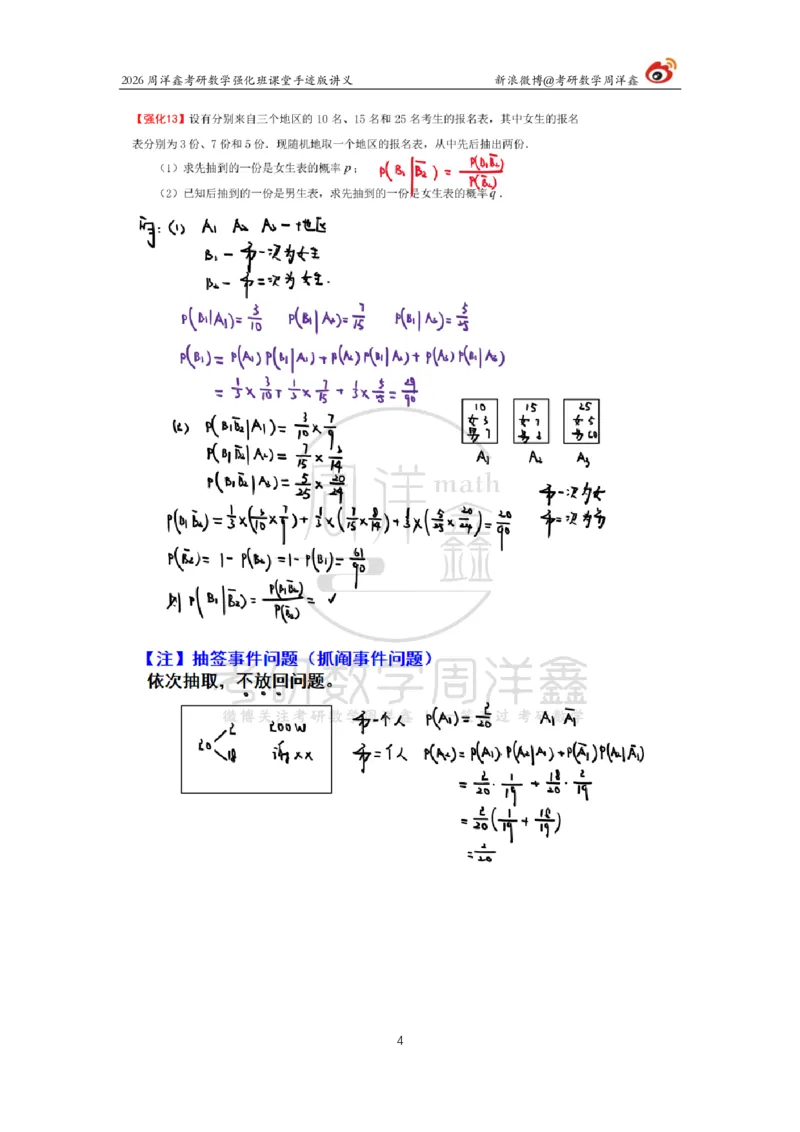 2026 周洋鑫考研数学强化班课堂手迹版讲义 新浪微博@考研数学周洋鑫
【强化13】设有分别来自三个地区的 10 名、15 名和 25 名考生的报名表，其中女生的报名
表分别为 3 份、7 份和 5 份．现随机地取一个地区的报名表，从中先后抽出两份．
（1）求先抽到的一份是女生表的概率 p；
P(B₁|B̄₂) = P(B₁B̄₂)/P(B̄₂)
（2）已知后抽到的一份是男生表，求先抽到的一份是女生表的概率 q．
解：(1) A₁ A₂ A₃ — 地区
B₁ — 第一次为女生
B₂ — 第二次为女生.
P(B₁|A₁)=3/10 P(B₁|A₂)=7/15 P(B₁|A₃)=5/25
P(B₁) = P(A₁)P(B₁|A₁)+P(A₂)P(B₁|A₂)+P(A₃)P(B₁|A₃)
= 1/3×3/10+1/3×7/15+1/3×5/25=29/90
(2) P(B₁B̄₂|A₁)=3/10×7/9
P(B₁B̄₂|A₂)=7/15×8/14
P(B₁B̄₂|A₃)=5/25×20/24
10 15 25
女3 女7 女5
男7 男8 男20
A₁ A₂ A₃
第一次为女
第二次为男
P(B₁B̄₂)=1/3×(3/10×7/9)+1/3×(7/15×8/14)+1/3×(5/25×20/24)=20/90
P(B̄₂)=1-P(B₂)=1-P(B₁)=61/90
则 P(B₁|B̄₂)=P(B₁B̄₂)/P(B̄₂)= ✓
周洋鑫 math
【注】抽签事件问题（抓阄事件问题）
依次抽取，不放回问题。
考研数学周洋鑫
20 2 200W
18 谢xx
第一个人 P(A₁)=2/20 A₁ Ā₁
第二个人 P(A₂)=P(A₁)·P(A₂|A₁)+P(Ā₁)P(A₂|Ā₁)
= 2/20·1/19+18/20·2/19
= 2/20(1/19+18/19)
= 2/20
4